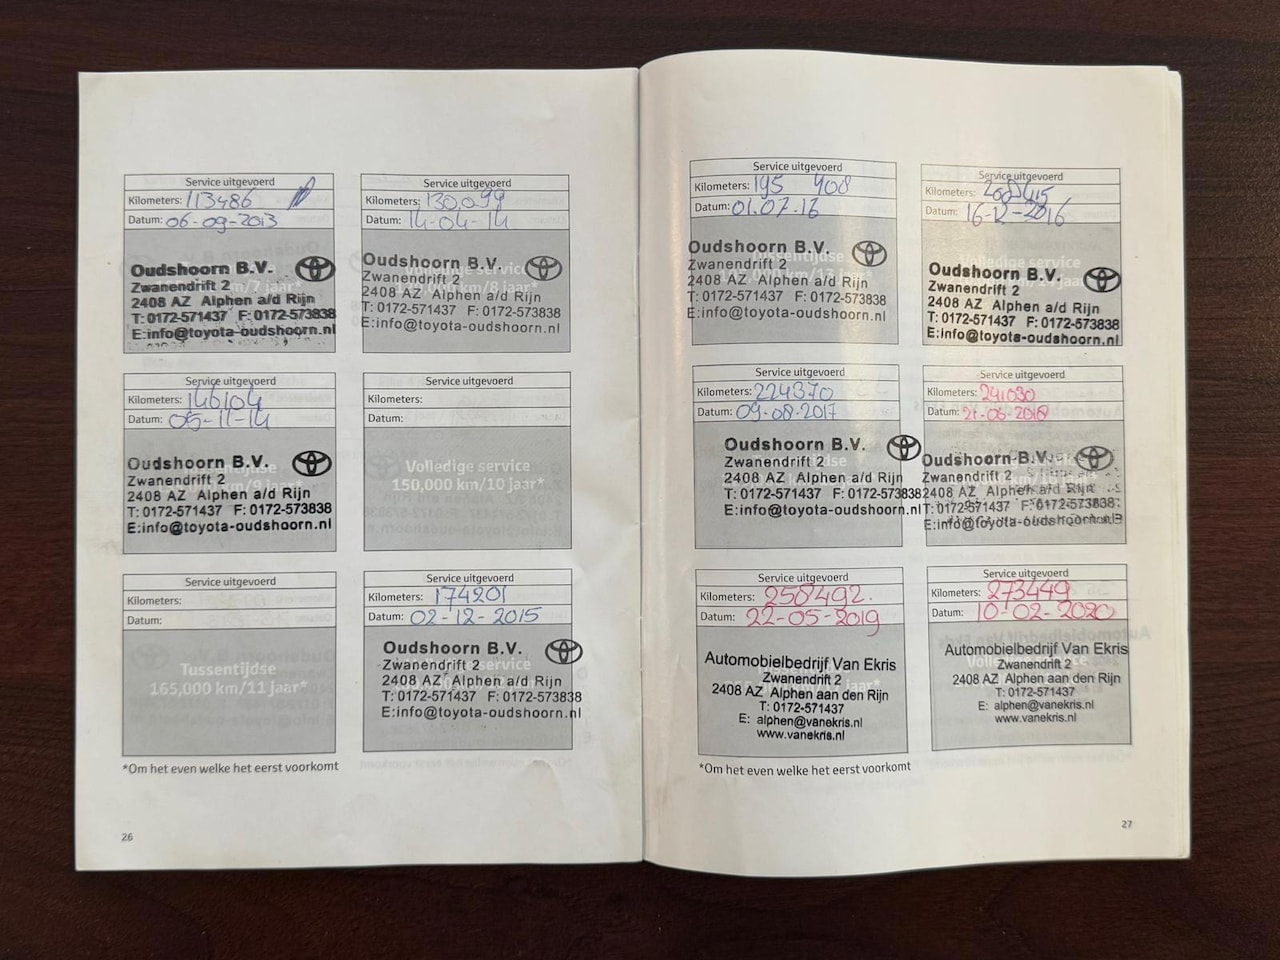 Service uitgevoerd
Kilometers: 113486
Datum: 06-09-2013
Oudshoorn B.V.
Zwanendrift 2
2408 AZ Alphen a/d Rijn
T: 0172-571437 F: 0172-573838
E:info@toyota-oudshoorn.nl
Service uitgevoerd
Kilometers: 130.099
Datum: 14-04-14
Oudshoorn B.V.
Volledige service
Zwanendrift 2
2408 AZ Alphen a/d Rijn
T: 0172-571437 F: 0172-573838
E:info@toyota-oudshoorn.nl
Service uitgevoerd
Kilometers: 146104
Datum: 05-11-14
Oudshoorn B.V.
Zwanendrift 2
2408 AZ Alphen a/d Rijn
T: 0172-571437 F: 0172-573838
E:info@toyota-oudshoorn.nl
Service uitgevoerd
Kilometers:
Datum:
Volledige service
150,000 km/10 jaar*
Service uitgevoerd
Kilometers:
Datum:
Tussentijdse
165,000 km/11 jaar*
Service uitgevoerd
Kilometers: 174201
Datum: 02-12-2015
Oudshoorn B.V.
Zwanendrift 2
2408 AZ Alphen a/d Rijn
T: 0172-571437 F: 0172-573838
E:info@toyota-oudshoorn.nl
*Om het even welke het eerst voorkomt
26
Service uitgevoerd
Kilometers: 195 908
Datum: 01.07.16
Oudshoorn B.V.
Zwanendrift 2
2408 AZ Alphen a/d Rijn
T: 0172-571437 F: 0172-573838
E:info@toyota-oudshoorn.nl
Service uitgevoerd
Kilometers:
Datum: 16-12-2016
Volledige service
Oudshoorn B.V.
Zwanendrift 2
2408 AZ Alphen a/d Rijn
T: 0172-571437 F: 0172-573838
E:info@toyota-oudshoorn.nl
Service uitgevoerd
Kilometers: 224370
Datum: 09-08-2017
Oudshoorn B.V.
Zwanendrift 2
2408 AZ Alphen a/d Rijn
T: 0172-571437 F: 0172-573838
E:info@toyota-oudshoorn.nl
Service uitgevoerd
Kilometers: 241030
Datum: 21-06-2018
Oudshoorn B.V.
Zwanendrift 2
2408 AZ Alphen a/d Rijn
T: 0172-571437 F: 0172-573838
E:info@toyota-oudshoorn.nl
Service uitgevoerd
Kilometers: 258492.
Datum: 22-05-2019
Automobielbedrijf Van Ekris
Zwanendrift 2
2408 AZ Alphen aan den Rijn
T: 0172-571437
E: alphen@vanekris.nl
www.vanekris.nl
Service uitgevoerd
Kilometers: 273449
Datum: 10-02-2020
Automobielbedrijf Van Ekris
Zwanendrift 2
2408 AZ Alphen aan den Rijn
T: 0172-571437
E: alphen@vanekris.nl
www.vanekris.nl
*Om het even welke het eerst voorkomt
27